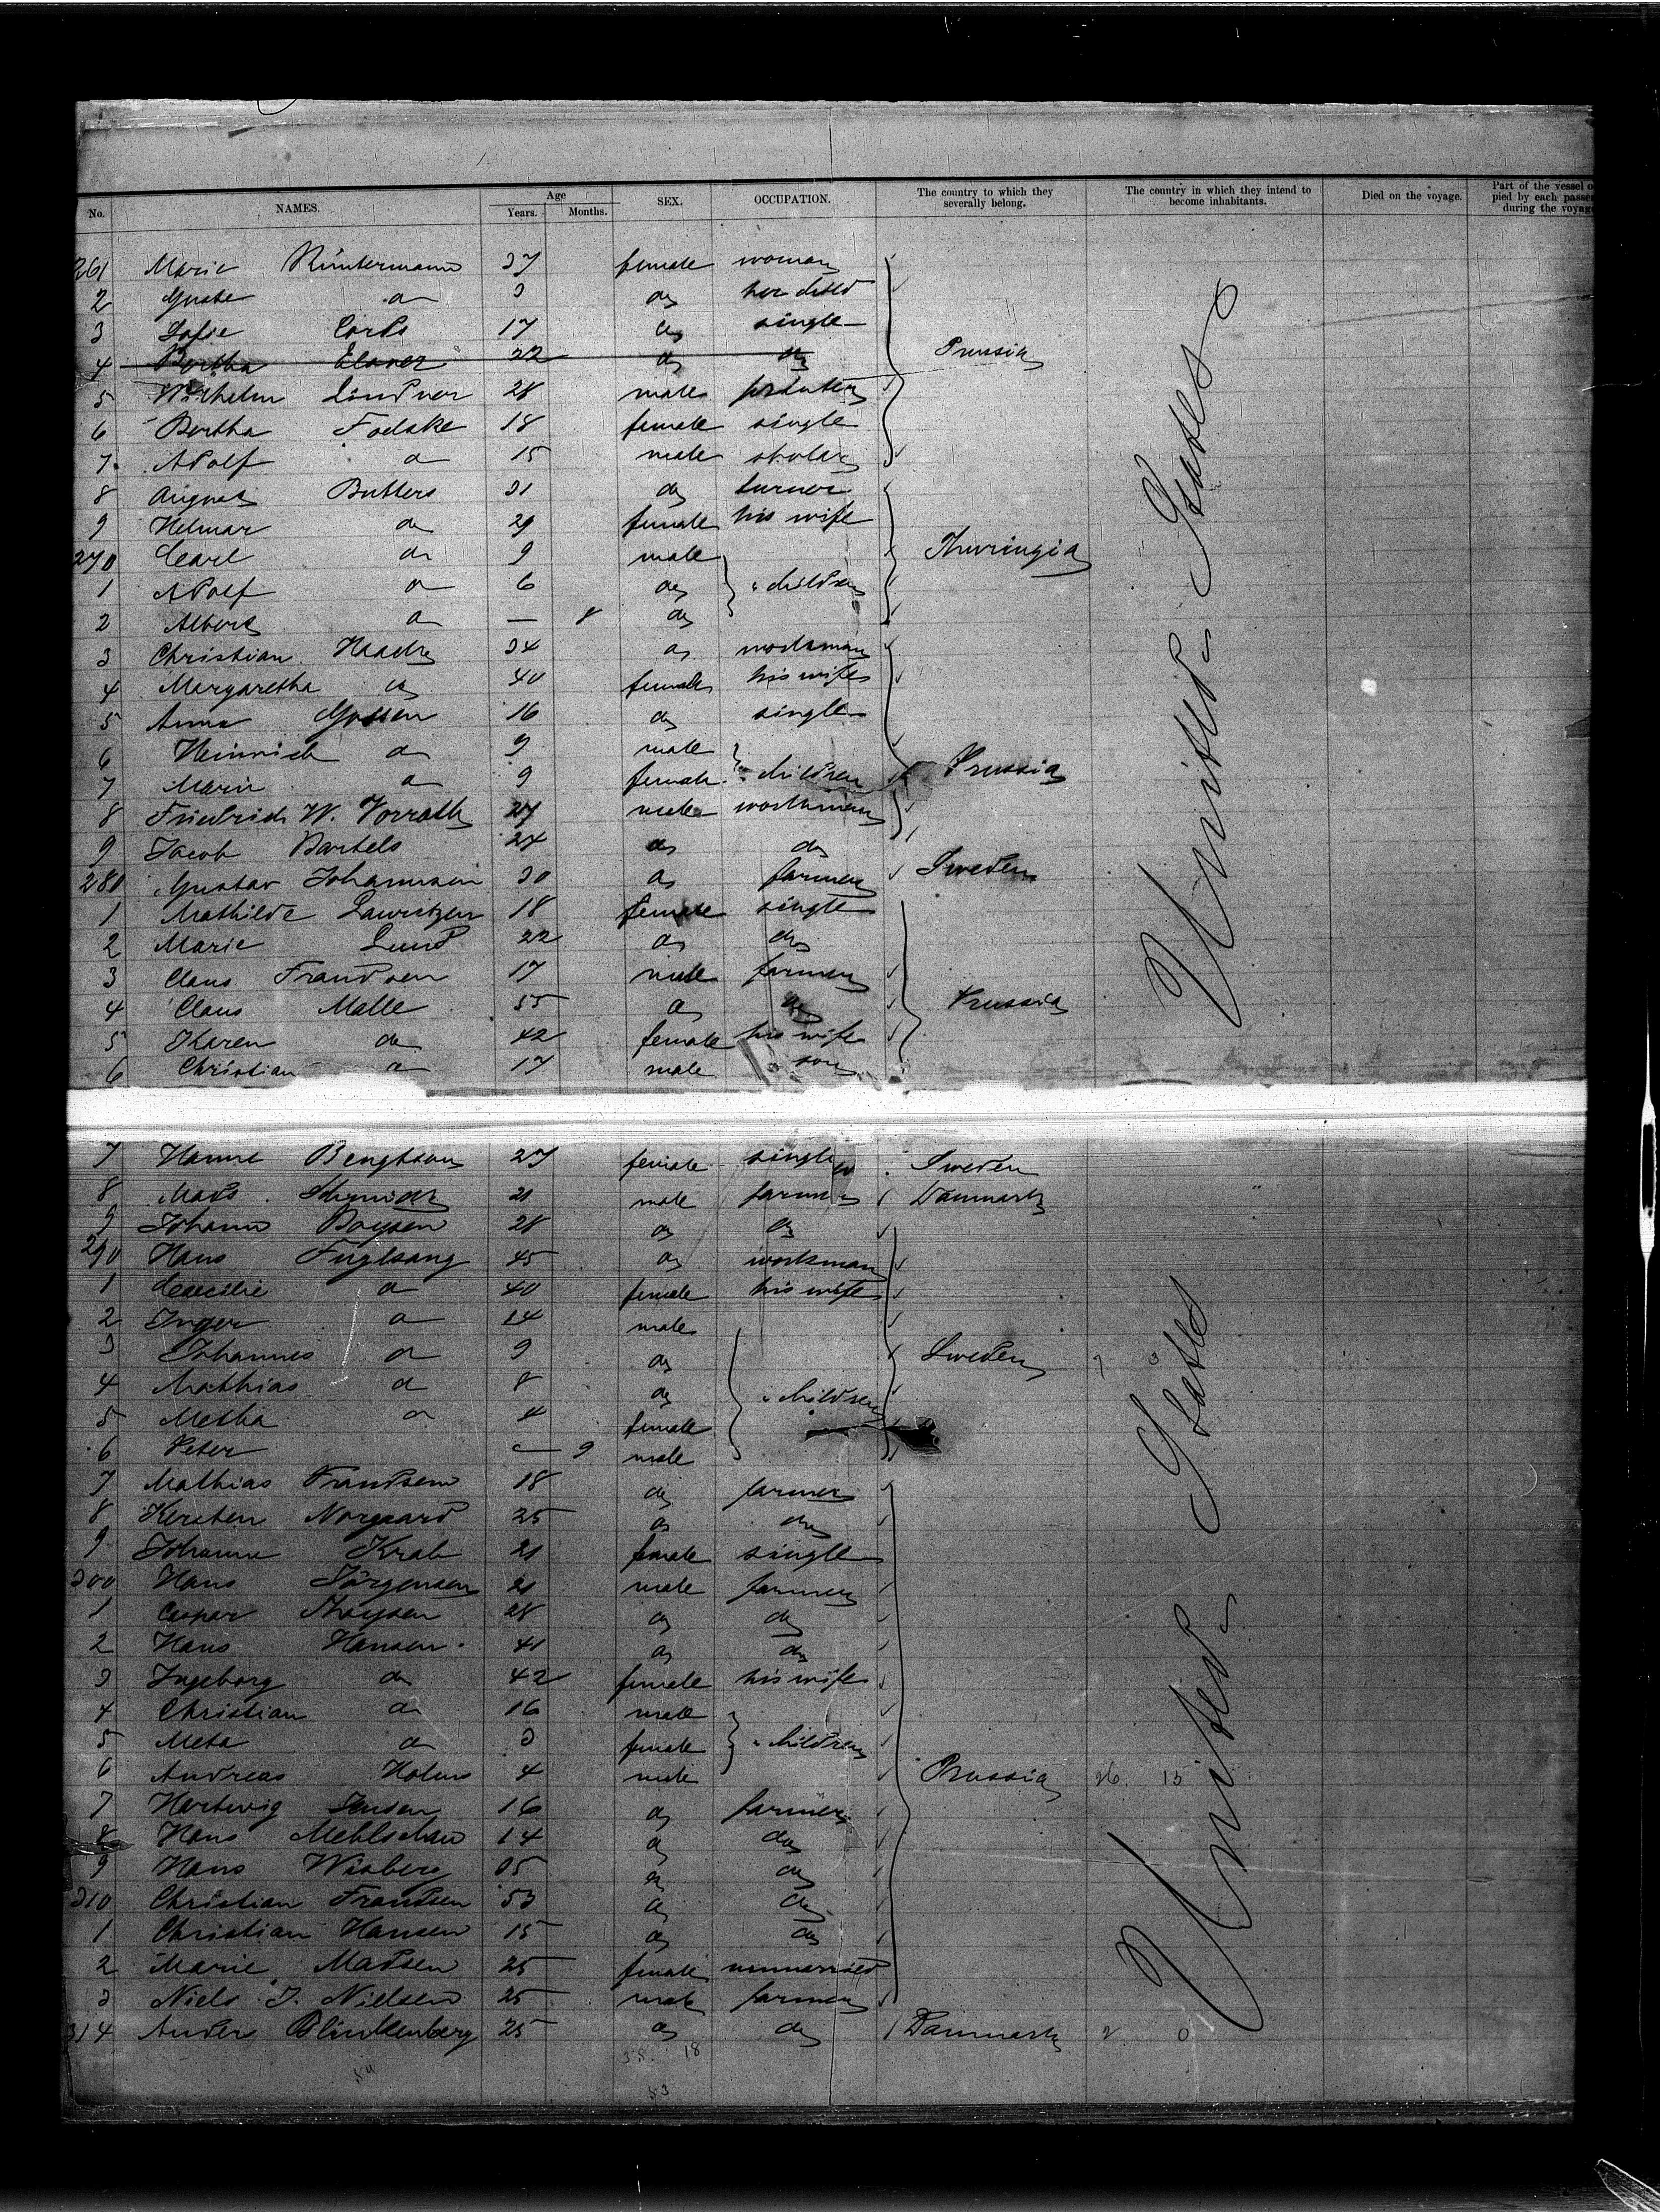 No. NAMES. Age Years. Months. SEX. OCCUPATION. The country to which they severally belong. The country in which they intend to become inhabitants. Died on the voyage. Part of the vessel o pied by each passe during the voyag
261 Marie Küntermann 37 female woman
2 do 3 do her child
3 17 do single
4 Bertha 22 do do Prussia
5 Wilhelm Lindner 28 male
6 Bertha Fodske 18 female single
7 Adolf do 15 male scholar
8 August Butlers 31 do turner
9 Helmar do 29 female his wife
270 Carl do 9 male Thuringia
1 Adolf do 6 do children
2 Albert do — 8 do
3 Christian Haack 34 do workman
4 Margaretha do 40 female his wife
5 Anna 16 do single
6 Heinrich do 9 male
7 Marie do 9 female children Prussia
8 Friedrich W. Vorrath 27 male workman
9 Jacob Bartels 24 do do
280 Gustav Johannsen 30 do farmer Sweden
1 Mathilde Lauritzen 18 female single
2 Marie Lund 22 do do
3 Claus Frandsen 17 male farmer
4 Claus Malle 55 do do Prussia
5 Karen do 42 female his wife
6 Christian do 17 male son
United States
7 Hanne Bengtson 27 female single Sweden
8 Mads Schmidt 21 male farmer Danmark
9 Johann Boysen 28 do do
290 Hans Fuglsang 45 do workman
1 Caecilie do 40 female his wife
2 Inger do 14 male
3 Johannes do 9 do Sweden 7 3
4 Mathias do 8 do children
5 Metha do 4 female
6 Peter — 9 male
7 Mathias Frandsen 18 do farmer
8 Kersten Norgaard 25 do do
9 Johanne Krab 21 female single
300 Hans Jörgensen 21 male farmer
1 Caspar Thaysen 28 do do
2 Hans Hansen 41 do do
3 Ingeborg do 42 female his wife
4 Christian do 16 male
5 Meta do 3 female children
6 Andreas Holm 4 male Prussia 26 13
7 Hartwig Jensen 16 do farmer
8 Hans Mehlschau 14 do do
9 Hans Wisberg 35 do do
310 Christian Frandsen 53 do do
1 Christian Hansen 15 do do
2 Marie Madsen 25 female unmarried
3 Niels J. Nielsen 25 male farmer
314 Ander Blinkenberg 25 do do Danmark 2 0
United States
38 18
53